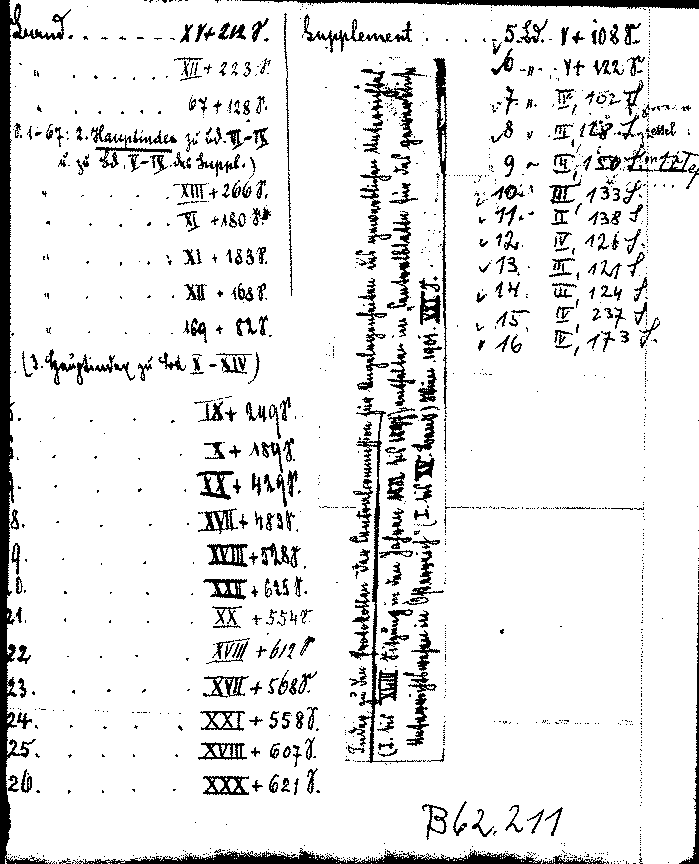 Band. XV + 212 S.
" XII + 223 S.
" 67 + 128 S.
S. 1-67: 2. Hauptindex zu Bd. VI-IX
u. zu Bd. V-IX des Suppl.)
" XIII + 266 S.
" XI + 180 S.
" XI + 183 S.
" XII + 168 S.
" 169 + 82 S.
(3. Hauptindex zu Bd. X-XIV)
IX + 249 S.
X + 184 S.
XX + 429 S.
8. XVII + 483 S.
9. XVIII + 528 S.
0. XXII + 625 S.
21. XX + 554 S.
22 XVIII + 612 S
23. XVII + 568 S.
24. XXI + 558 S.
25. XVIII + 607 S.
26. XXX + 621 S.
Supplement 5. Bd. V + 108 S.
6 " V + 122 S.
7 " IV, 152 S
8 " III, 128 S.
9 " II, 150 S.
10. III, 133 S.
11. II, 138 S
12. IV, 126 S.
13. III, 121 S.
14. III, 124 S.
15. IV, 237 S.
16 IV, 173 S.
Index zu den Protokollen der Centralcommission für Angelegenheiten des gewerblichen Unterrichtes
(I. bis XVIII. Sitzung in den Jahren bis enthalten im Centralblatte für das gewerbliche
Unterrichtswesen in Österreich (I. bis XV. Band) Wien 1901. XXI S.
B62.211